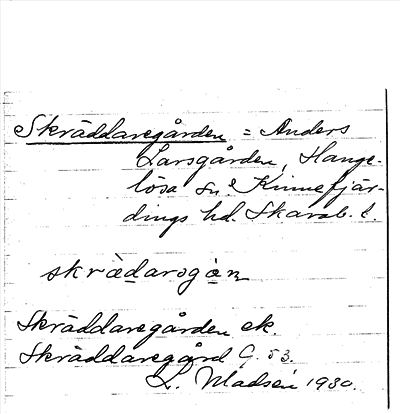 Skräddaregården = Anders
Larsgården, Hange-
lösa sn, Kinnefjär-
dings hd. Skarab. l.
skrädarəgȧn
Skräddaregården ek.
Skräddaregård G. 53.
L. Madsén 1930.